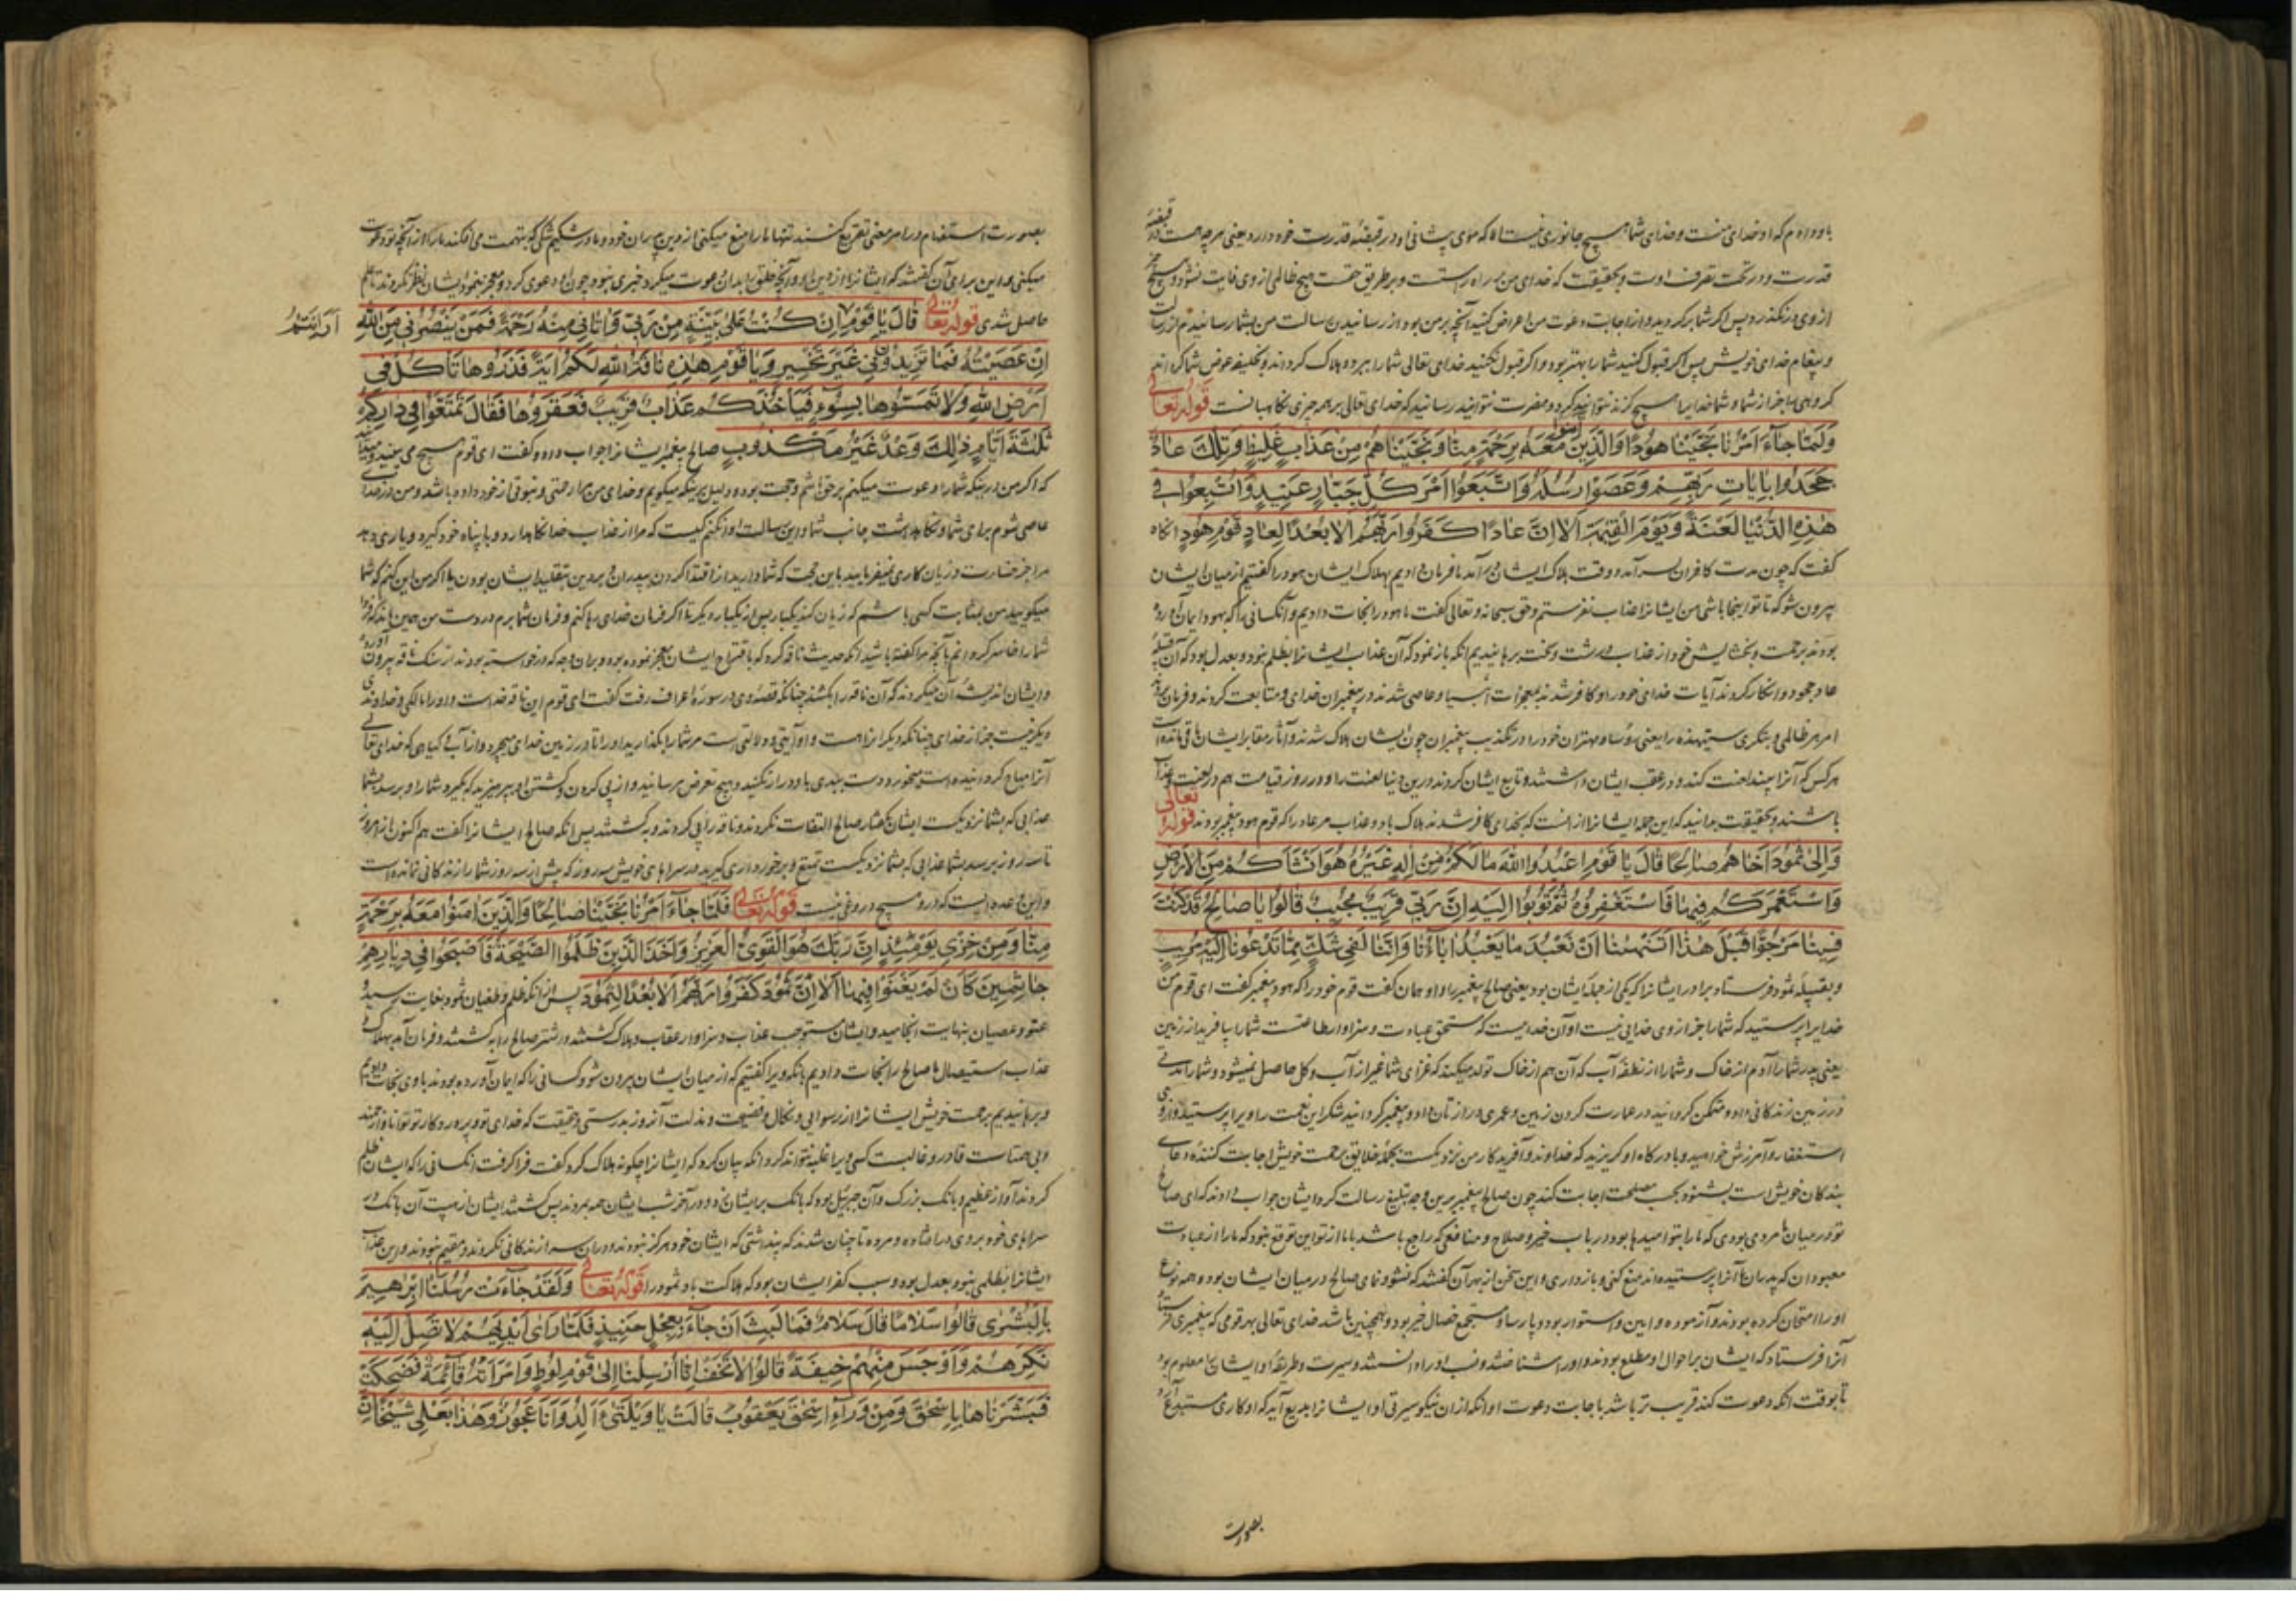 قبضه
باو داده‌ام که او خدای منست و خدای شما هیچ جانوری نیست الا که موی پیشانی او در قبضهٔ قدرت خود دارد یعنی هرچه هست در
قدرت و در تحت تصرف اوست و بحقیقت که خدای من بر راه راستست و بر طریق حقست هیچ ظالمی از وی فایت نشود و هیچ
از وی درنگذرد پس اگر شما برگردید و از اجابت دعوت من اعراض کنید آنچه بر من بود از رسانیدن رسالت من بشما رسانیدم از رسالت
و پیغام خدای خویش پس اگر قبول کنید شما را بهتر بود و اگر قبول نکنید خدای تعالی شما را هلاک گرداند و بخلیفه عوض شما گرداند
گروهی را جز از شما و شما خدایرا هیچ گزند نتوانید کرد و مضرت نتوانید رسانید که خدای تعالی بر همه چیزی نگاهبانست قوله تعالی
وَلَمَّا جَاءَ أَمْرُنَا نَجَّيْنَا هُودًا وَالَّذِينَ آمنوا مَعَهُ بِرَحْمَةٍ مِنَّا وَنَجَّيْنَاهُمْ مِنْ عَذَابٍ غَلِيظٍ وَتِلْكَ عَادٌ
جَحَدُوا بِآيَاتِ رَبِّهِمْ وَعَصَوْا رُسُلَهُ وَاتَّبَعُوا أَمْرَ كُلِّ جَبَّارٍ عَنِيدٍ وَأُتْبِعُوا فِي
هٰذِهِ الدُّنْيَا لَعْنَةً وَيَوْمَ الْقِيٰمَةِ أَلَا إِنَّ عَادًا كَفَرُوا رَبَّهُمْ أَلَا بُعْدًا لِعَادٍ قَوْمِ هُودٍ آنگاه
گفت که چون مدت کافران بسر آمد و وقت هلاک ایشان درآمد ما فرمان دادیم بهلاک ایشان هود را گفتیم از میان ایشان
بیرون شو که تا تو اینجا باشی من ایشانرا عذاب نفرستم و حق سبحانه و تعالی گفت ما هود را نجات دادیم و آنکسانی را که بهود ایمان آورده
بودند برحمت و بخشایش خود از عذاب درشت و سخت برهانیدیم آنگه باز نمود که آن عذاب ایشانرا بظلم نبود و بعدل بود که آن قبیلهٔ
عاد جحود و انکار کردند آیات خدای خود را و کافر شدند بمعجزات انبیا و عاصی شدند در پیغمبران خدای و متابعت کردند و فرمان بردند
امر هر ظالمی و متکبری ستیهنده را یعنی رؤسا و مهتران خود را در تکذیب پیغمبران چون ایشان هلاک شدند و آثار مقابر ایشان باقی مانده است
هرکس که آنرا بیند لعنت کند و در عقب ایشان داشتند و تابع ایشان کردند درین دنیا لعنت را و در روز قیامت هم در لعنت و عذاب
باشند و بحقیقت بدانید که این جمله ایشانرا از آنست که بخدای کافر شدند هلاک باد و عذاب مر عاد را که قوم هود پیغمبر بودند قوله تعالی
وَإِلَىٰ ثَمُودَ أَخَاهُمْ صَالِحًا قَالَ يَا قَوْمِ اعْبُدُوا اللّٰهَ مَا لَكُمْ مِنْ إِلٰهٍ غَيْرُهُ هُوَ أَنْشَأَكُمْ مِنَ الْأَرْضِ
وَاسْتَعْمَرَكُمْ فِيهَا فَاسْتَغْفِرُوهُ ثُمَّ تُوبُوا إِلَيْهِ إِنَّ رَبِّي قَرِيبٌ مُجِيبٌ قَالُوا يَا صَالِحُ قَدْ كُنْتَ
فِينَا مَرْجُوًّا قَبْلَ هٰذَا أَتَنْهَانَا أَنْ نَعْبُدَ مَا يَعْبُدُ آبَاؤُنَا وَإِنَّنَا لَفِي شَكٍّ مِمَّا تَدْعُونَا إِلَيْهِ مُرِيبٍ
و بقبیلهٔ ثمود فرستاد برادر ایشانرا که یکی از جملهٔ ایشان بود یعنی صالح پیغمبر را و او همان گفت قوم خود را که هود پیغمبر گفت ای قوم من
خدایرا پرستید که شما را جز از وی خدایی نیست او آن خداییست که مستحق عبادت و سزاوار طاعتست شما را بیافرید از زمین
یعنی پدر شما را آدم از خاک و شما را از نطفهٔ آب که آن هم از خاک تولد میکند که غذای شما غیر از آب و گل حاصل نمیشود و شما را
در زمین زندگانی داد و متمکن گردانید در عمارت کردن زمین و عمری دراز تان داد و پیغمبر گردانید شکر این نعمت را ویرا پرستید و از وی
استغفار و آمرزش خواهید و بادرگاه او گریزید که خداوند و آفریدگار من نزدیکست بجمله خلایق برحمت خویش اجابت کنندهٔ دعای
بندگان خویش است بشنود بحسب مصلحت اجابت کند چون صالح پیغمبر برین وجه تبلیغ رسالت کرد ایشان جواب دادند که ای صالح
تو در میان ما مردی بودی که ما را بتو امیدها بود در باب خیر و صلاح و منافعی که راجع باشد با ما از تو این توقع نبود که ما را از عبادت
معبودان که پدران ما آنرا پرستیده‌اند منع کنی و بازداری و این سخن از بهر آن گفتند که نشو و نمای صالح در میان ایشان بود و همه نوع
او را امتحان کرده بودند و آزموده و امین و استوار بود و پارسا و مستجمع خصال خیر بود و همچنین باشد خدای تعالی بهر قومی که پیغمبری فرستاد
آنرا فرستاد که ایشان بر احوال او مطلع بودند و او را شناختند و نسب او را دانستند و سیرت و طریقهٔ او ایشانرا معلوم بود
تا بوقت آنکه دعوت کند قریب تر باشد باجابت دعوت او آنکه از آن نیکو سیرتی او ایشانرا بدیع آید که او کاری
بصورت
بصورت استفهام و مراد معنی تقریع گفتند تنها ما را منع میکنی از دین پدران خود و ما در شکیم شکی که بتهمت می افکند ما را از آنچه تو دعوت
میکنی و این برای آن گفتند که ایشانرا از دین او و آنچه خلق را بدان دعوت میکرد خبری نبود چون او دعوی کرد و معجز نمود ایشان نظر نکردند تا علم
حاصل شدی قوله تعالی قَالَ يَا قَوْمِ إِنْ كُنْتُ عَلَىٰ بَيِّنَةٍ مِنْ رَبِّي وَآتَانِي مِنْهُ رَحْمَةً فَمَنْ يَنْصُرُنِي مِنَ اللّٰهِ
أَرَأَيْتُمْ
إِنْ عَصَيْتُهُ فَمَا تَزِيدُونَنِي غَيْرَ تَخْسِيرٍ وَيَا قَوْمِ هٰذِهِ نَاقَةُ اللّٰهِ لَكُمْ آيَةً فَذَرُوهَا تَأْكُلْ فِي
أَرْضِ اللّٰهِ وَلَا تَمَسُّوهَا بِسُوءٍ فَيَأْخُذَكُمْ عَذَابٌ قَرِيبٌ فَعَقَرُوهَا فَقَالَ تَمَتَّعُوا فِي دَارِكُمْ
ثَلٰثَةَ أَيَّامٍ ذٰلِكَ وَعْدٌ غَيْرُ مَكْذُوبٍ صالح پیغمبر ایشانرا جواب داد و گفت ای قوم هیچ می بینید و میدانید
که اگر من درینکه شما را دعوت میکنم بر حق باشم و حجت بود و دلیل برینکه میگویم و خدای من مرا رحمتی و نبوتی از نزد خود داده باشد و من در خدای
عاصی شوم برای شما و نگاهداشت جانب شما و این رسالت ادا نکنم کیست که مرا از عذاب خدا نگاهدارد و با پناه خود گیرد و یاری دهد
مرا جز خسارت و زیان کاری نمیفزایید باین حجت که شما دارید از اقتدا کردن بپدران و بر دین بتقلید ایشان بودن یا اگر من این کنم که شما
میگویید من بمثابت کسی باشم که زیان کند یکبار پس از یکبار دیگر تا اگر فرمان خدای رها کنم و فرمان شما برم در دست من همین باشد که
شما را خاسر گردانم بآنچه مرا گفته باشید آنگه حدیث ناقه کرد که باقتراح ایشان معجز نموده بود و بران وجه که درخواسته بودند از سنگ ناقه بیرون آورده
و ایشان اندیشهٔ آن میکردند که آن ناقه را بکشند چنانکه قصهٔ وی در سورهٔ اعراف رفت گفت ای قوم این ناقه خداست و او را مالکی و خداوندی
دیگر نیست جز از خدای چنانکه دیگر انرا هست و او آیتی و دلالتی است مر شما را بگذارید او را تا در زمین خدای میچرد و از آب و گیاهی که خدای تعالی
آنرا مباح گردانیده است میخورد و دست ببدی باو دراز نکنید و هیچ تعرض مرسانید و از پی کردن و کشتن او بپرهیزید که بگیرد شما را و برسد بشما
عذابی که بشما نزدیکست ایشان بگفتار صالح التفات نکردند و ناقه را پی کردند و بکشتند پس آنگه صالح ایشانرا گفت هم اکنون از امروز
تا سه روز برسد بشما عذابی که بشما نزدیکست تمتع و برخورداری گیرید در سراهای خویش سه روز که بیش از سه روز شما را زندگانی نمانده است
و این وعده ایست که درو هیچ دروغی نیست قوله تعالی فَلَمَّا جَاءَ أَمْرُنَا نَجَّيْنَا صَالِحًا وَالَّذِينَ آمَنُوا مَعَهُ بِرَحْمَةٍ
مِنَّا وَمِنْ خِزْيِ يَوْمَئِذٍ إِنَّ رَبَّكَ هُوَ الْقَوِيُّ الْعَزِيزُ وَأَخَذَ الَّذِينَ ظَلَمُوا الصَّيْحَةُ فَأَصْبَحُوا فِي دِيَارِهِمْ
جَاثِمِينَ كَأَنْ لَمْ يَغْنَوْا فِيهَا أَلَا إِنَّ ثَمُودَ كَفَرُوا رَبَّهُمْ أَلَا بُعْدًا لِثَمُودَ پس از آنکه ظلم و طغیان ثمود بغایت رسید و
عتو و عصیان بنهایت انجامید و ایشان مستوجب عذاب و سزاوار عقاب و هلاک گشتند و شتر صالح را بکشتند و فرمان آمد بهلاک
عذاب استیصال ما صالح را نجات دادیم بآنکه ویرا گفتیم که از میان ایشان بیرون شو و کسانی را که ایمان آورده بودند با وی نجات دادیم
و برهانیدیم برحمت خویش ایشانرا از رسوایی و نکال و فضیحت و مذلت آنروز بدرستی و حقیقت که خدای تو و پروردگار تو توانا و ارجمند
و بی همتاست قادر و غالبست کسی ویرا غلبه نتواند کرد آنگه بیان کرد که ایشانرا چگونه هلاک کرد گفت فرا گرفت آنکسانی را که ایشان ظلم
کردند آواز عظیم و بانگ بزرگ و آن جبرئیل بود که بانگ بر ایشان زد و در آخر شب ایشان همه بمردند پس گشتند ایشان از هیبت آن بانگ در
سراهای خود بروی در افتاده و مرده تا چنان شدند که پنداشتی که ایشان خود هرگز نبودند و دران سرا زندگانی نکردند و مقیم نبودند و این عذاب
ایشانرا بظلمی نبود بعدل بود و سبب کفر ایشان بود که هلاکت باد ثمود را قوله تعالی وَلَقَدْ جَاءَتْ رُسُلُنَا إِبْرٰهِيمَ
بِالْبُشْرَىٰ قَالُوا سَلَامًا قَالَ سَلَامٌ فَمَا لَبِثَ أَنْ جَاءَ بِعِجْلٍ حَنِيذٍ فَلَمَّا رَأَىٰ أَيْدِيَهُمْ لَا تَصِلُ إِلَيْهِ
نَكِرَهُمْ وَأَوْجَسَ مِنْهُمْ خِيفَةً قَالُوا لَا تَخَفْ إِنَّا أُرْسِلْنَا إِلَىٰ قَوْمِ لُوطٍ وَامْرَأَتُهُ قَائِمَةٌ فَضَحِكَتْ
فَبَشَّرْنَاهَا بِإِسْحٰقَ وَمِنْ وَرَاءِ إِسْحٰقَ يَعْقُوبَ قَالَتْ يَا وَيْلَتَىٰ أَأَلِدُ وَأَنَا عَجُوزٌ وَهٰذَا بَعْلِي شَيْخًا إِنَّ